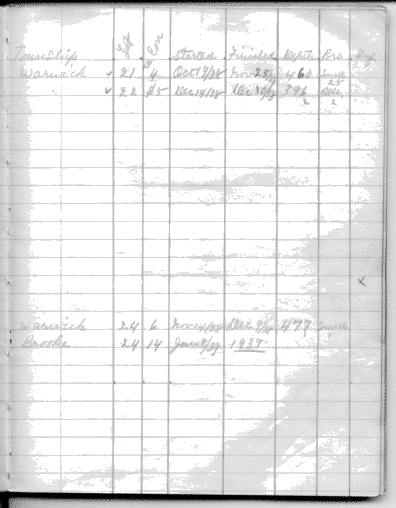 Township Lot Con Started Finished Depth Pro Dry
Warwick ✓ 21 4 Oct 19/38 Nov 25/38 460 Small
" ✓ 22 5 Dec 14/38 Dec 30/38 396
Warwick 24 6 Nov 14/38 Dec 9/38 477 Small
Brooke 24 14 Jan 8/39 1939